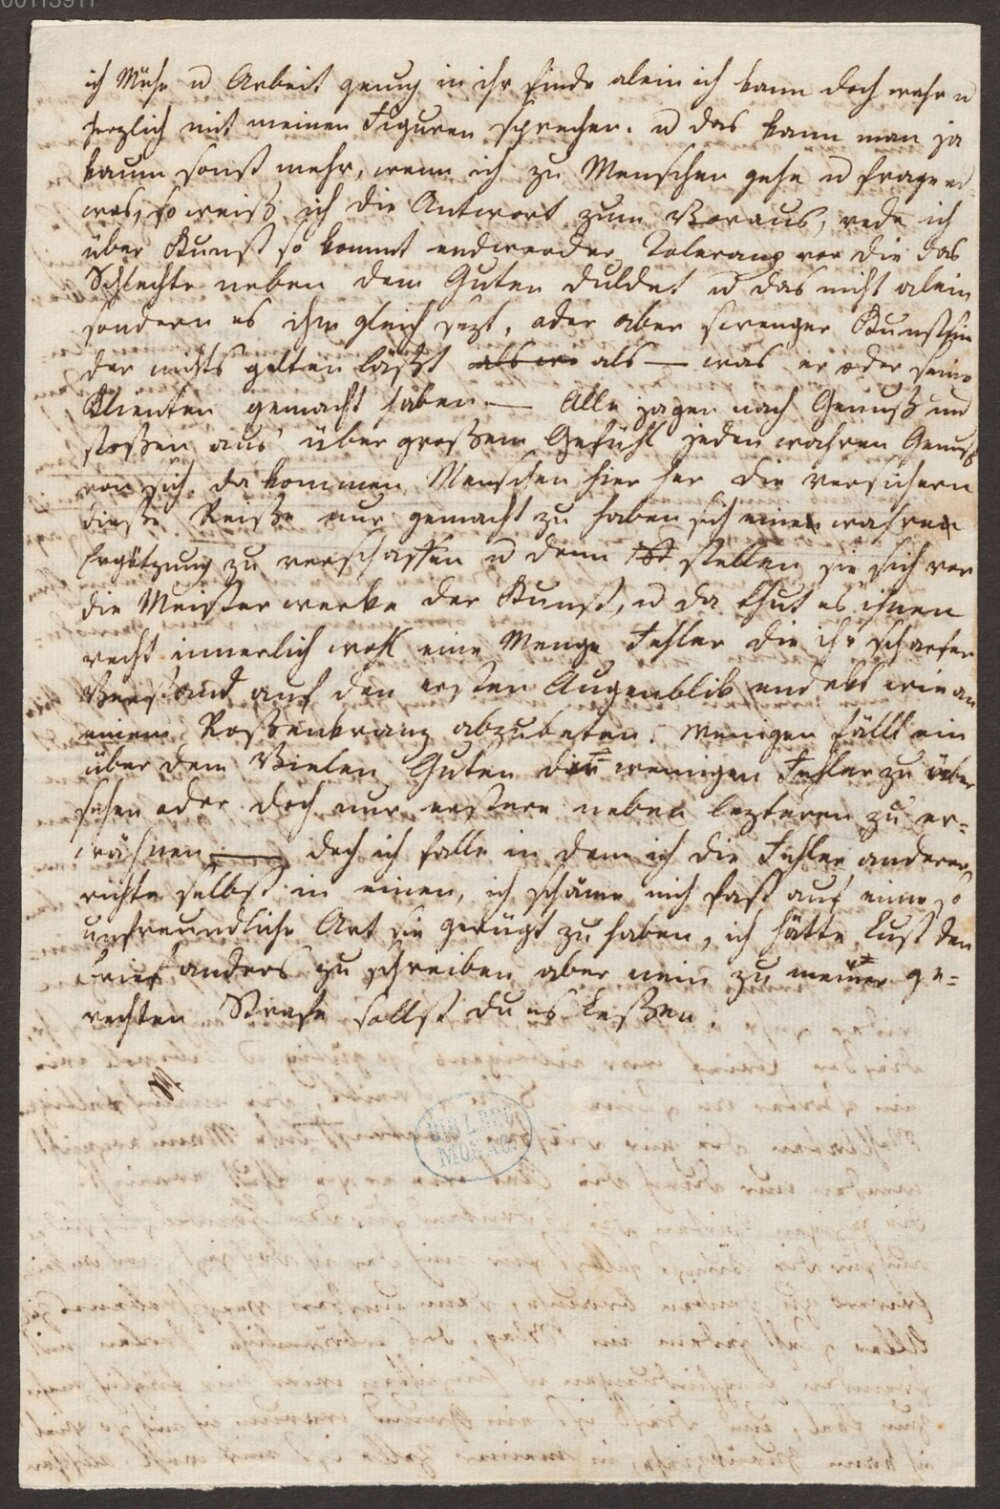 00113911
ich Mühe u Arbeit genug in ihr finde alein ich kann doch wahr u
herzlich mit meinen Figuren sprechen. u das kann man ja
kaum sonst mehr, wenn ich zu Menschen gehe u frage
was, so weiß ich die Antwort zum Voraus, rede ich
über Kunst so kommt endweder Toleranz vor die das
Schlechte neben dem Guten duldet u das nicht alein
sondern es ihm gleich sezt, oder aber strenger Kunstsin
der nichts gelten läßt als — was er oder seine
Klienten gemacht haben — Alle jagen nach Genuß und
stoßen aus über großem Gefühl jeden wahren Genuß
von sich. da kommen Menschen hier her die versichern
dieße Reiße nur gemacht zu haben sich einen wahren
Ergötzung zu verschaffen u denn stellen sie sich vor
die Meisterwerke der Kunst, u da thut es ihnen
recht innerlich woll eine Menge Fehler die ihr scharfer
Verstand auf den ersten Augenblik endekt wie an
einem Roßenkranz abzubeten. wenigen fällt ein
über dem Vielen Guten die wenigen Fehler zu über
sehen oder doch nur erstere neben lezteren zu er=
wähnen — doch ich falle in dem ich die Fehler anderer
richte selbst in einen, ich schäme mich fast auf eine so
unfreundliche Art sie gerügt zu haben, ich hätte Lust den
Brief anders zu schreiben aber nein zu meiner ge=
rechten Strafe sollst du es leßen.
BIBL. REG.
MONAC.